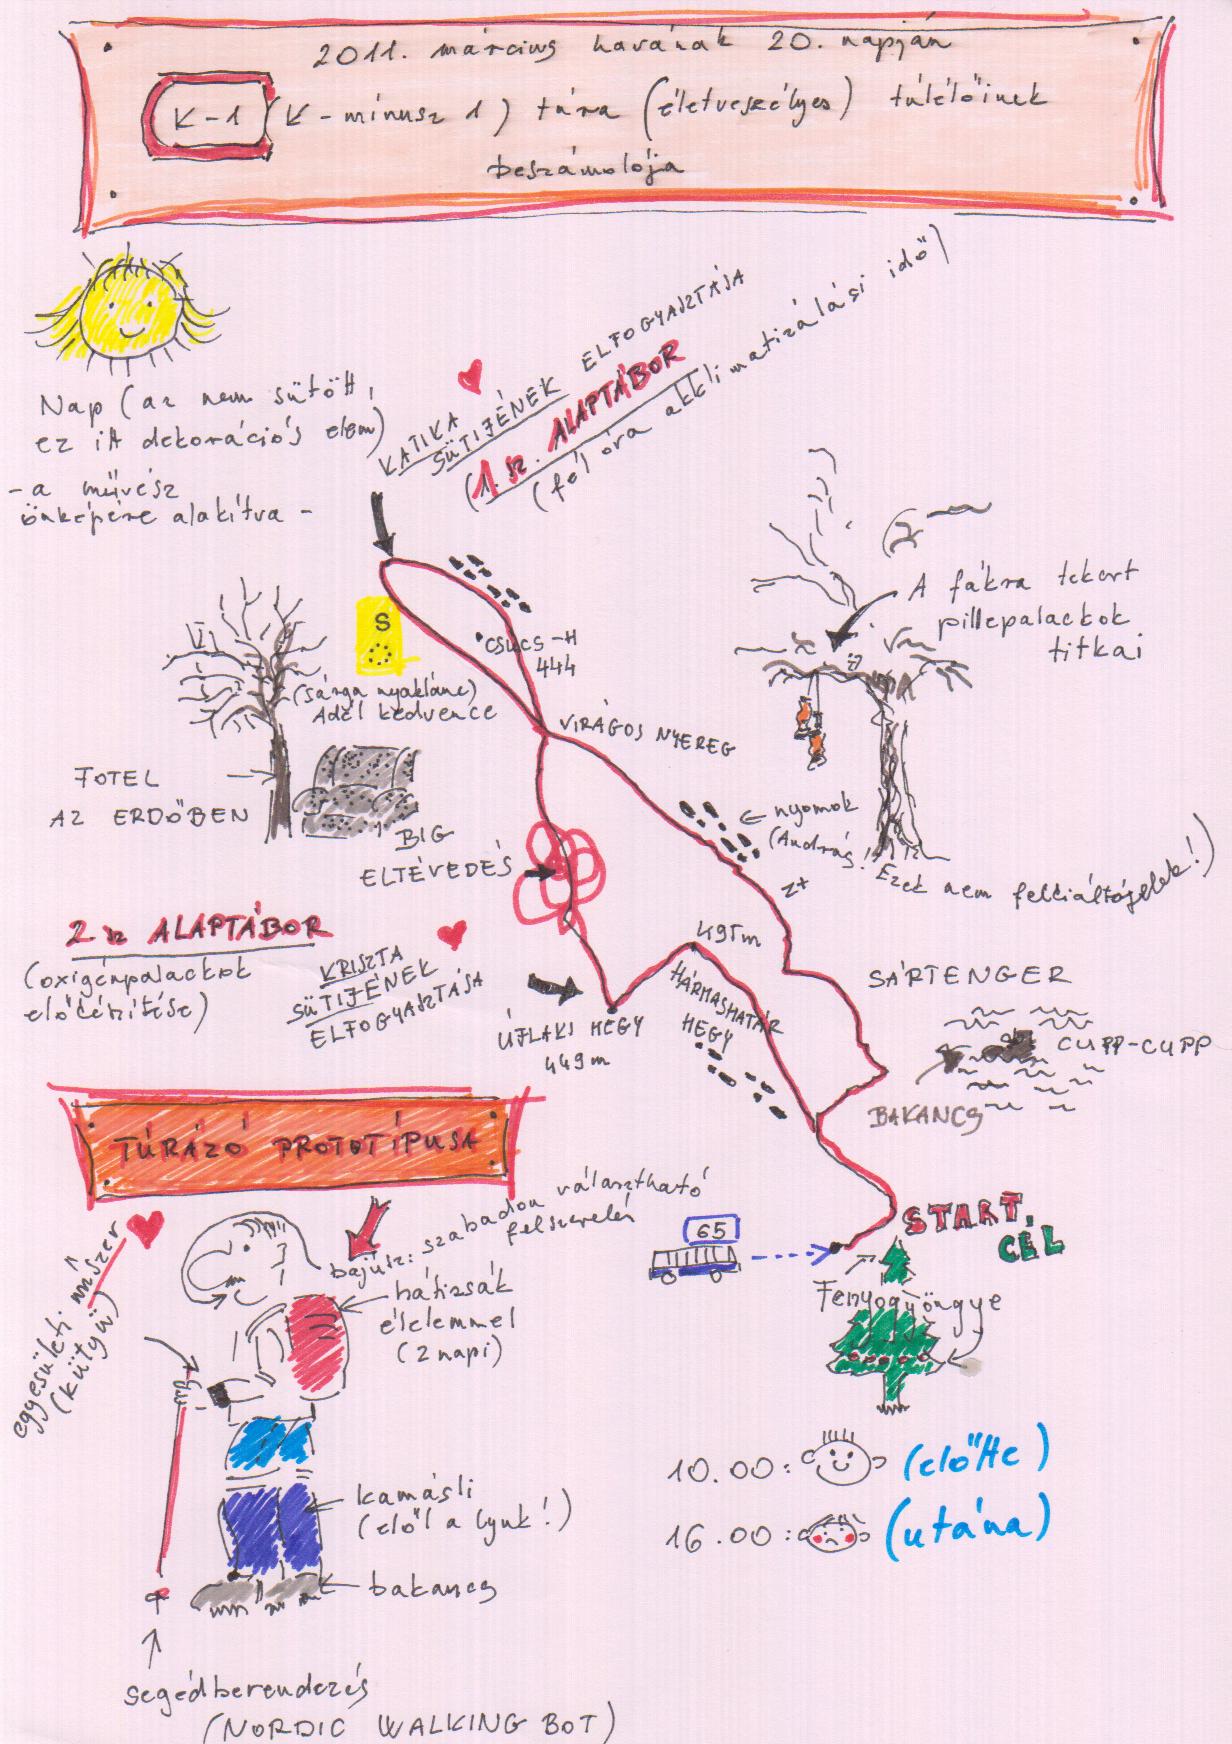 2011. március havának 20. napján
K-1 (K-mínusz 1) túra (életveszélyes) túlélőinek
beszámolója
Nap (az nem sütött,
ez itt dekorációs elem)
- a művész
önképére alakítva -
KATIKA
SÜTIJÉNEK ELFOGYASZTÁSA
(1. sz. ALAPTÁBOR
(fél óra akklimatizálási idő)
A fákra tekert
pillepalackok
titkai
S
CSÚCS-H
444
(sárga nyaklánc)
Adél kedvence
VIRÁGOS NYEREG
FOTEL
AZ ERDŐBEN
BIG
ELTÉVEDÉS
nyomok
(András! Ezek nem felkiáltójelek!)
Z+
2. sz ALAPTÁBOR
(oxigénpalackok
előkészítése)
KRISZTA
SÜTIJÉNEK
ELFOGYASZTÁSA
ÚJLAKI HEGY
449m
495m
HÁRMASHATÁR
HEGY
SÁRTENGER
CUPP-CUPP
BAKANCS
TÚRÁZÓ PROTOTÍPUSA
bajusz: szabadon választható
felszerelés
hátizsák
élelemmel
(2 napi)
egyesületi műszer
(kütyü)
65
START,
CÉL
Fenyőgyöngye
kamásli
(elől a lyuk!)
bakancs
10.00: (előtte)
16.00: (utána)
segédberendezés
(NORDIC WALKING BOT)